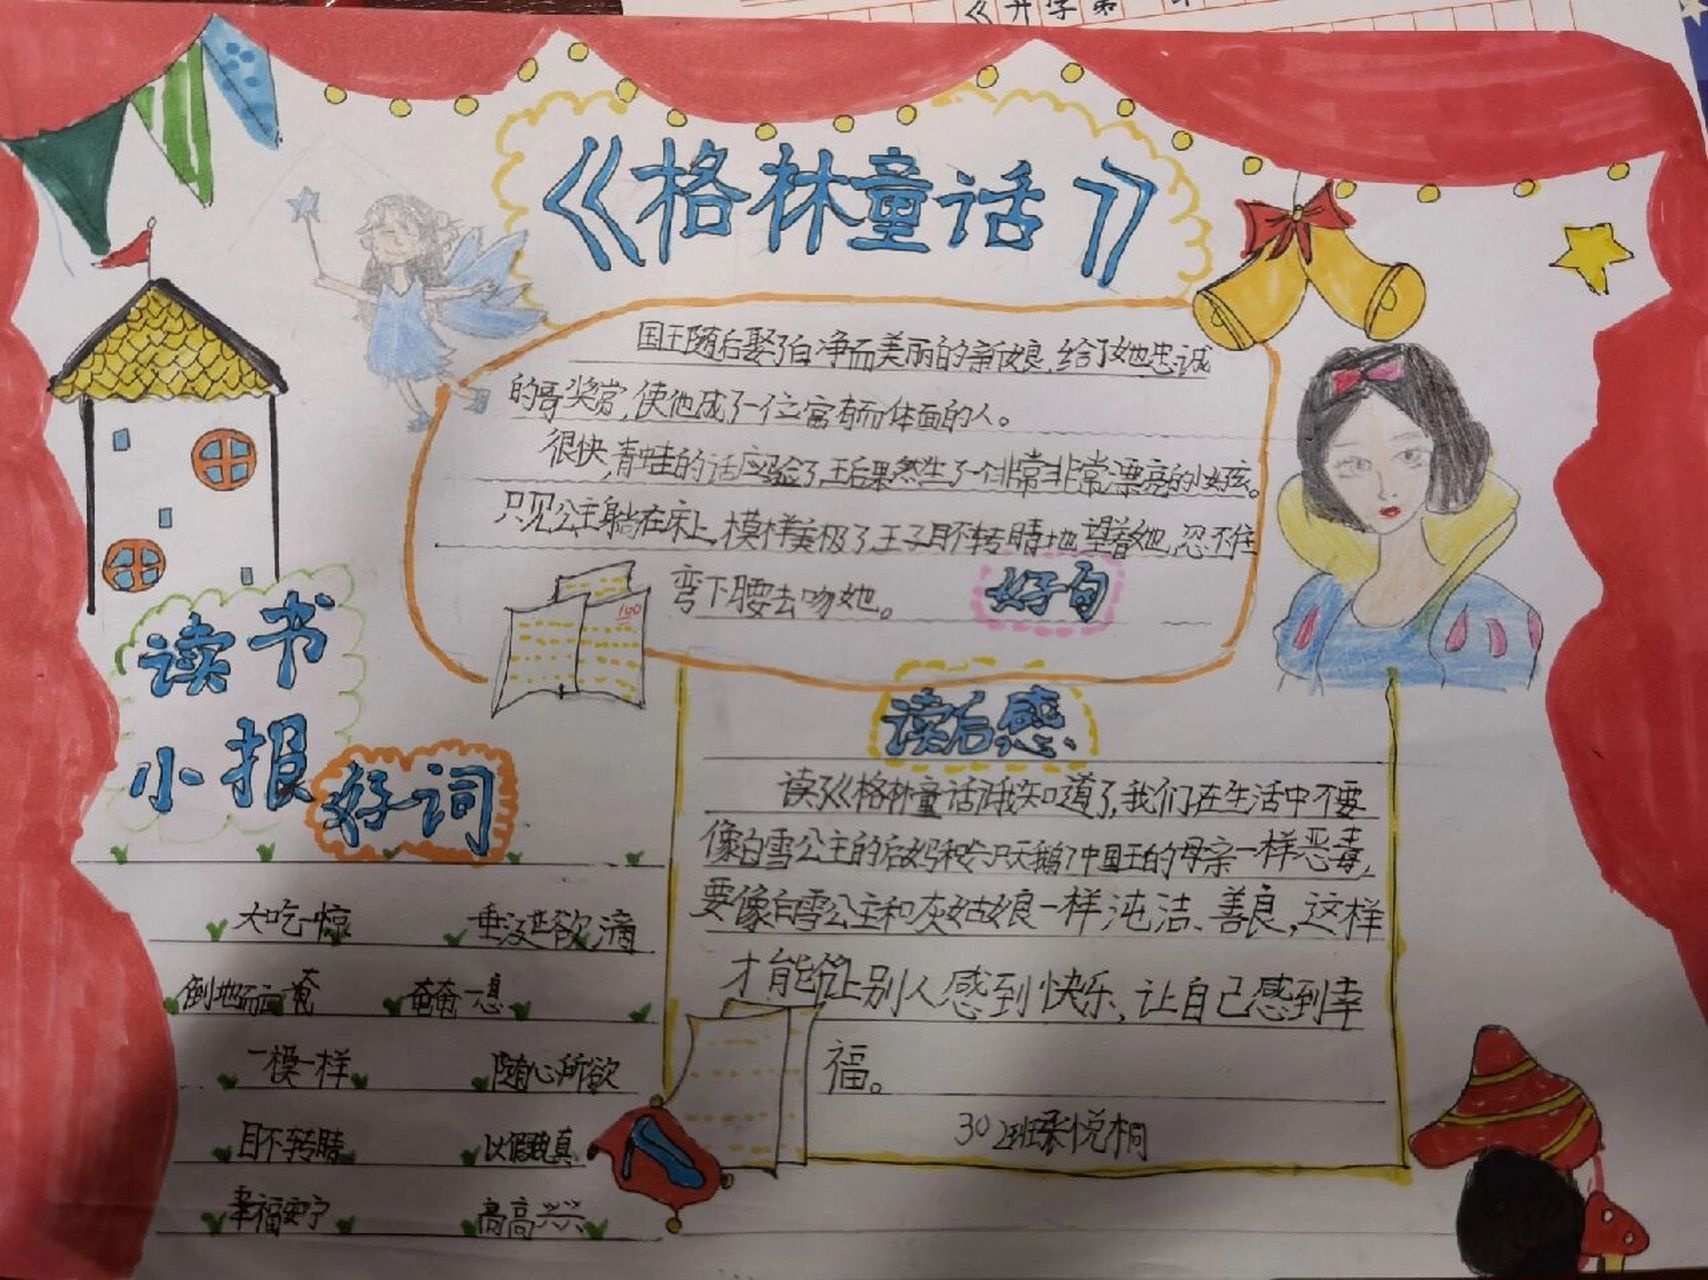 《开学第
《格林童话》
国王随后娶了白净而美丽的新娘,给了她忠诚
的哥奖赏,使他成了一位富有而体面的人。
很快,青蛙的话应验了,王后果然生了一个非常非常漂亮的小女孩。
只见公主躺在床上,模样美极了,王子目不转睛地望着她,忍不住
弯下腰去吻她。
好句
100
读书
小报
好词
大吃一惊 垂涎欲滴
倒地而亡 奄奄一息
一模一样 随心所欲
目不转睛 以假乱真
幸福安宁 高高兴兴
读后感
读了《格林童话》我知道了,我们在生活中不要
像白雪公主的后妈和六只天鹅了中国王的母亲一样恶毒,
要像白雪公主和灰姑娘一样纯洁、善良,这样
才能让别人感到快乐,让自己感到幸
福。
302班 悦桐